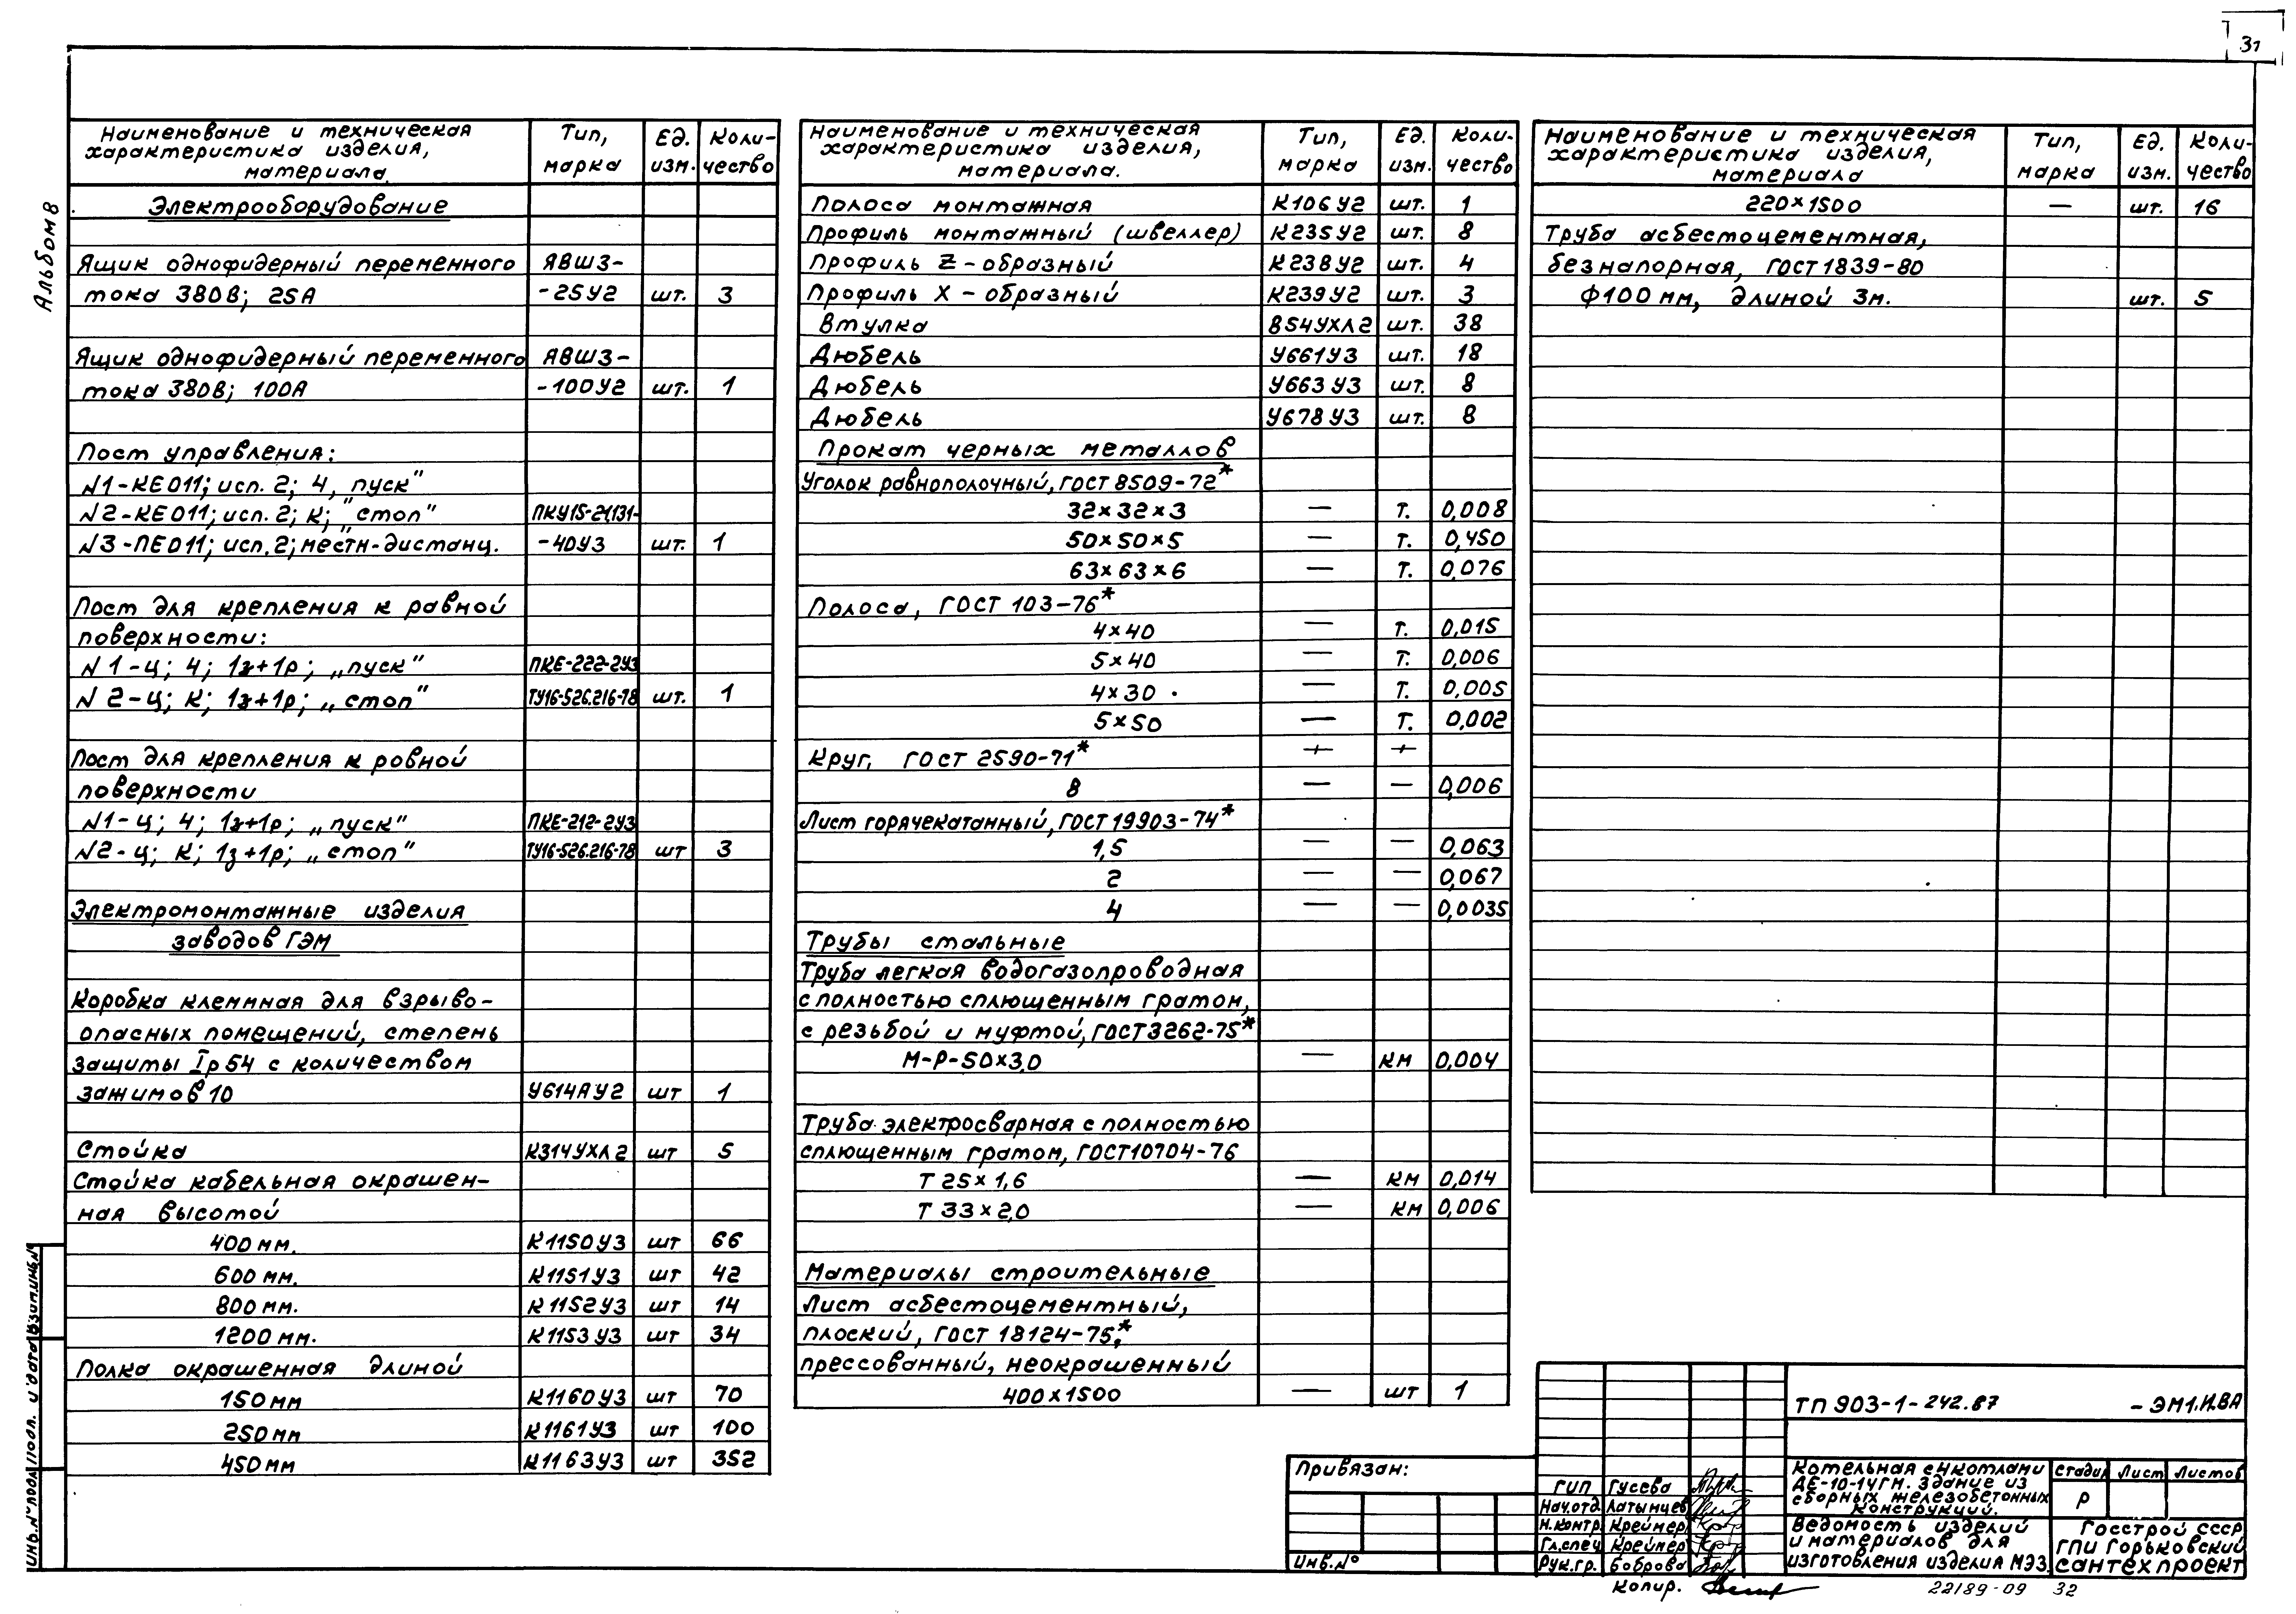 31
Альбом 8
Наименование и техническая характеристика изделия, материала. | Тип, марка | Ед. изм. | Коли-чество
Электрооборудование
Ящик однофидерный переменного | ЯВШ3-
тока 380В; 25А | -25У2 | шт. | 3
Ящик однофидерный переменного | ЯВШ3-
тока 380В; 100А | -100У2 | шт. | 1
Пост управления:
N1-КЕ011; исп. 2; 4, пуск"
N2-КЕ011; исп. 2; К; „стоп" | ПКУ15-21.131-
N3-ПЕ011; исп. 2; местн-дистанц. | -40У3 | шт. | 1
Пост для крепления к равной
поверхности:
N1-ц; 4; 1з+1р; „пуск" | ПКЕ-222-2У3
N2-ц; К; 1з+1р; „стоп" | ТУ16-526.216-78 | шт. | 1
Пост для крепления к ровной
поверхности
N1-ц; 4; 1з+1р; „пуск" | ПКЕ-212-2У3
N2-ц; К; 1з+1р; „стоп" | ТУ16-526.216-78 | шт | 3
Электромонтажные изделия
заводов ГЭМ
Коробка клеммная для взрыво-
опасных помещений, степень
защиты Iр54 с количеством
зажимов 10 | У614АУ2 | шт | 1
Стойка | К314УХЛ2 | шт | 5
Стойка кабельная окрашен-
ная высотой
400 мм. | К1150У3 | шт | 66
600 мм. | К1151У3 | шт | 42
800 мм. | К1152У3 | шт | 14
1200 мм. | К1153У3 | шт | 34
Полка окрашенная длиной
150 мм | К1160У3 | шт | 70
250 мм | К1161У3 | шт | 100
450 мм | К1163У3 | шт | 352
Наименование и техническая характеристика изделия, материала. | Тип, марка | Ед. изм. | Коли-чество
Полоса монтажная | К106У2 | шт. | 1
Профиль монтажный (швеллер) | К235У2 | шт. | 8
Профиль Z-образный | К238У2 | шт. | 4
Профиль Х-образный | К239У2 | шт. | 3
Втулка | В54УХЛ2 | шт. | 38
Дюбель | У661У3 | шт. | 18
Дюбель | У663У3 | шт. | 8
Дюбель | У678У3 | шт. | 8
Прокат черных металлов
Уголок равнополочный, ГОСТ 8509-72*
32×32×3 | — | Т. | 0,008
50×50×5 | — | Т. | 0,450
63×63×6 | — | Т. | 0,076
Полоса, ГОСТ 103-76*
4×40 | — | Т. | 0,015
5×40 | — | Т. | 0,006
4×30 | — | Т. | 0,005
5×50 | — | Т. | 0,002
Круг, ГОСТ 2590-71*
8 | — | — | 0,006
Лист горячекатанный, ГОСТ 19903-74*
1,5 | — | — | 0,063
2 | — | — | 0,067
4 | — | — | 0,0035
Трубы стальные
Труба легкая водогазопроводная
с полностью сплющенным гратом,
с резьбой и муфтой, ГОСТ 3262-75*
М-Р-50×3,0 | — | км | 0,004
Труба электросварная с полностью
сплющенным гратом, ГОСТ 10704-76
Т 25×1,6 | — | км | 0,014
Т 33×2,0 | — | км | 0,006
Материалы строительные
Лист асбестоцементный,
плоский, ГОСТ 18124-75,*
прессованный, неокрашенный
400×1500 | — | шт | 1
Наименование и техническая характеристика изделия, материала | Тип, марка | Ед. изм. | Коли-чество
220×1500 | — | шт. | 16
Труба асбестоцементная,
безнапорная, ГОСТ 1839-80
ф100 мм, длиной 3м. | шт. | 5
ТП 903-1-242.87 -ЭМ1.И.ВА
Привязан:
Инв.№
ГИП Гусева
Нач.отд. Латынцев
Н.контр. Креймер
Гл.спец Креймер
Рук.гр. Боброва
Котельная с 4 котлами
ДЕ-10-14ГМ. Здание из
сборных железобетонных
конструкций.
Стадия Лист Листов
Р
Ведомость изделий
и материалов для
изготовления изделия МЭЗ.
Госстрой СССР
ГПИ Горьковский
Сантехпроект
Копир.
22189-09 32
Инв.№ подл. Подп. и дата Взам.инв.№